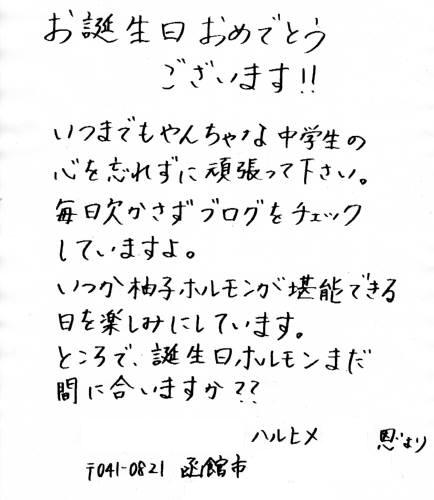 お誕生日おめでとう
ございます!!
いつまでもやんちゃな中学生の
心を忘れずに頑張って下さい。
毎日欠かさずブログをチェック
していますよ。
いつか柚子ホルモンが堪能できる
日を楽しみにしています。
ところで、誕生日ホルモンまだ
間に合いますか??
ハルヒメ 恩より
〒041-0821 函館市